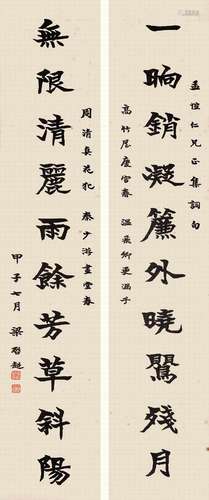 一晌銷凝簾外曉鶯殘月
仁兄正 集詞句
高竹屋慶宮春 溫飛卿更漏子
無限清麗雨餘芳草斜陽
周清真花犯 秦少游畫堂春
甲子七月 梁啟超